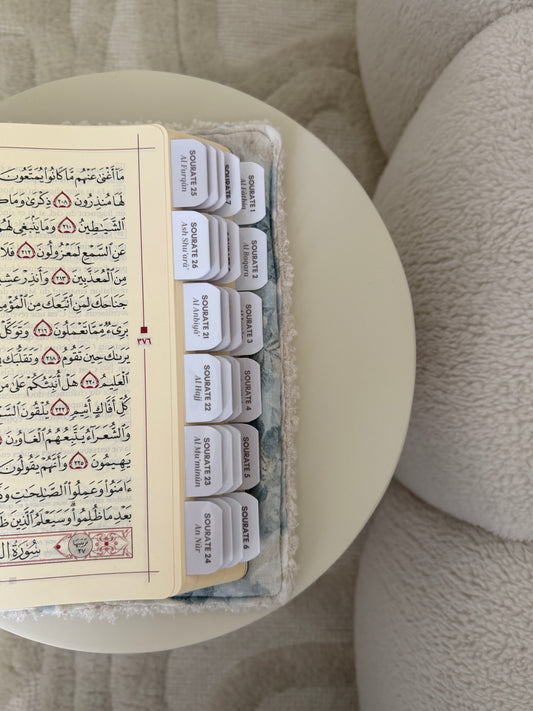 مَآ أَغْنَىٰ عَنْهُم مَّا كَانُوا۟ يُمَتَّعُونَ
لَهَا مُنذِرُونَ ٢٠٨ ذِكْرَىٰ وَمَا
ٱلشَّيَٰطِينُ ٢١٠ وَمَا يَنۢبَغِى لَهُمْ
عَنِ ٱلسَّمْعِ لَمَعْزُولُونَ ٢١٢ فَلَا
مِنَ ٱلْمُعَذَّبِينَ ٢١٣ وَأَنذِرْ
جَنَاحَكَ لِمَنِ ٱتَّبَعَكَ مِنَ
بَرِىٓءٌ مِّمَّا تَعْمَلُونَ ٢١٦ وَتَوَكَّلْ
يَرَىٰكَ حِينَ تَقُومُ ٢١٨ وَتَقَلُّبَكَ
ٱلْعَلِيمُ ٢٢٠ هَلْ أُنَبِّئُكُمْ عَلَىٰ
كُلِّ أَفَّاكٍ أَثِيمٍ ٢٢٢ يُلْقُونَ
وَٱلشُّعَرَآءُ يَتَّبِعُهُمُ ٱلْغَاوُۥنَ
يَهِيمُونَ ٢٢٥ وَأَنَّهُمْ يَقُولُونَ
ءَامَنُوا۟ وَعَمِلُوا۟ ٱلصَّٰلِحَٰتِ
بَعْدِ مَا ظُلِمُوا۟ وَسَيَعْلَمُ ٱلَّذِينَ
ترتيبها
٢٧
سُورَةُ
٣٧٦
SOURATE 25
Al Furqân
SOURATE 26
Ash Shu'arâ'
SOURATE 21
Al Anbiyâ'
SOURATE 22
Al Hajj
SOURATE 23
Al Mu'minûn
SOURATE 24
An Nûr
SOURATE 7
SOURATE 1
Al Fâtiha
SOURATE 2
Al Baqara
SOURATE 3
SOURATE 4
SOURATE 5
SOURATE 6